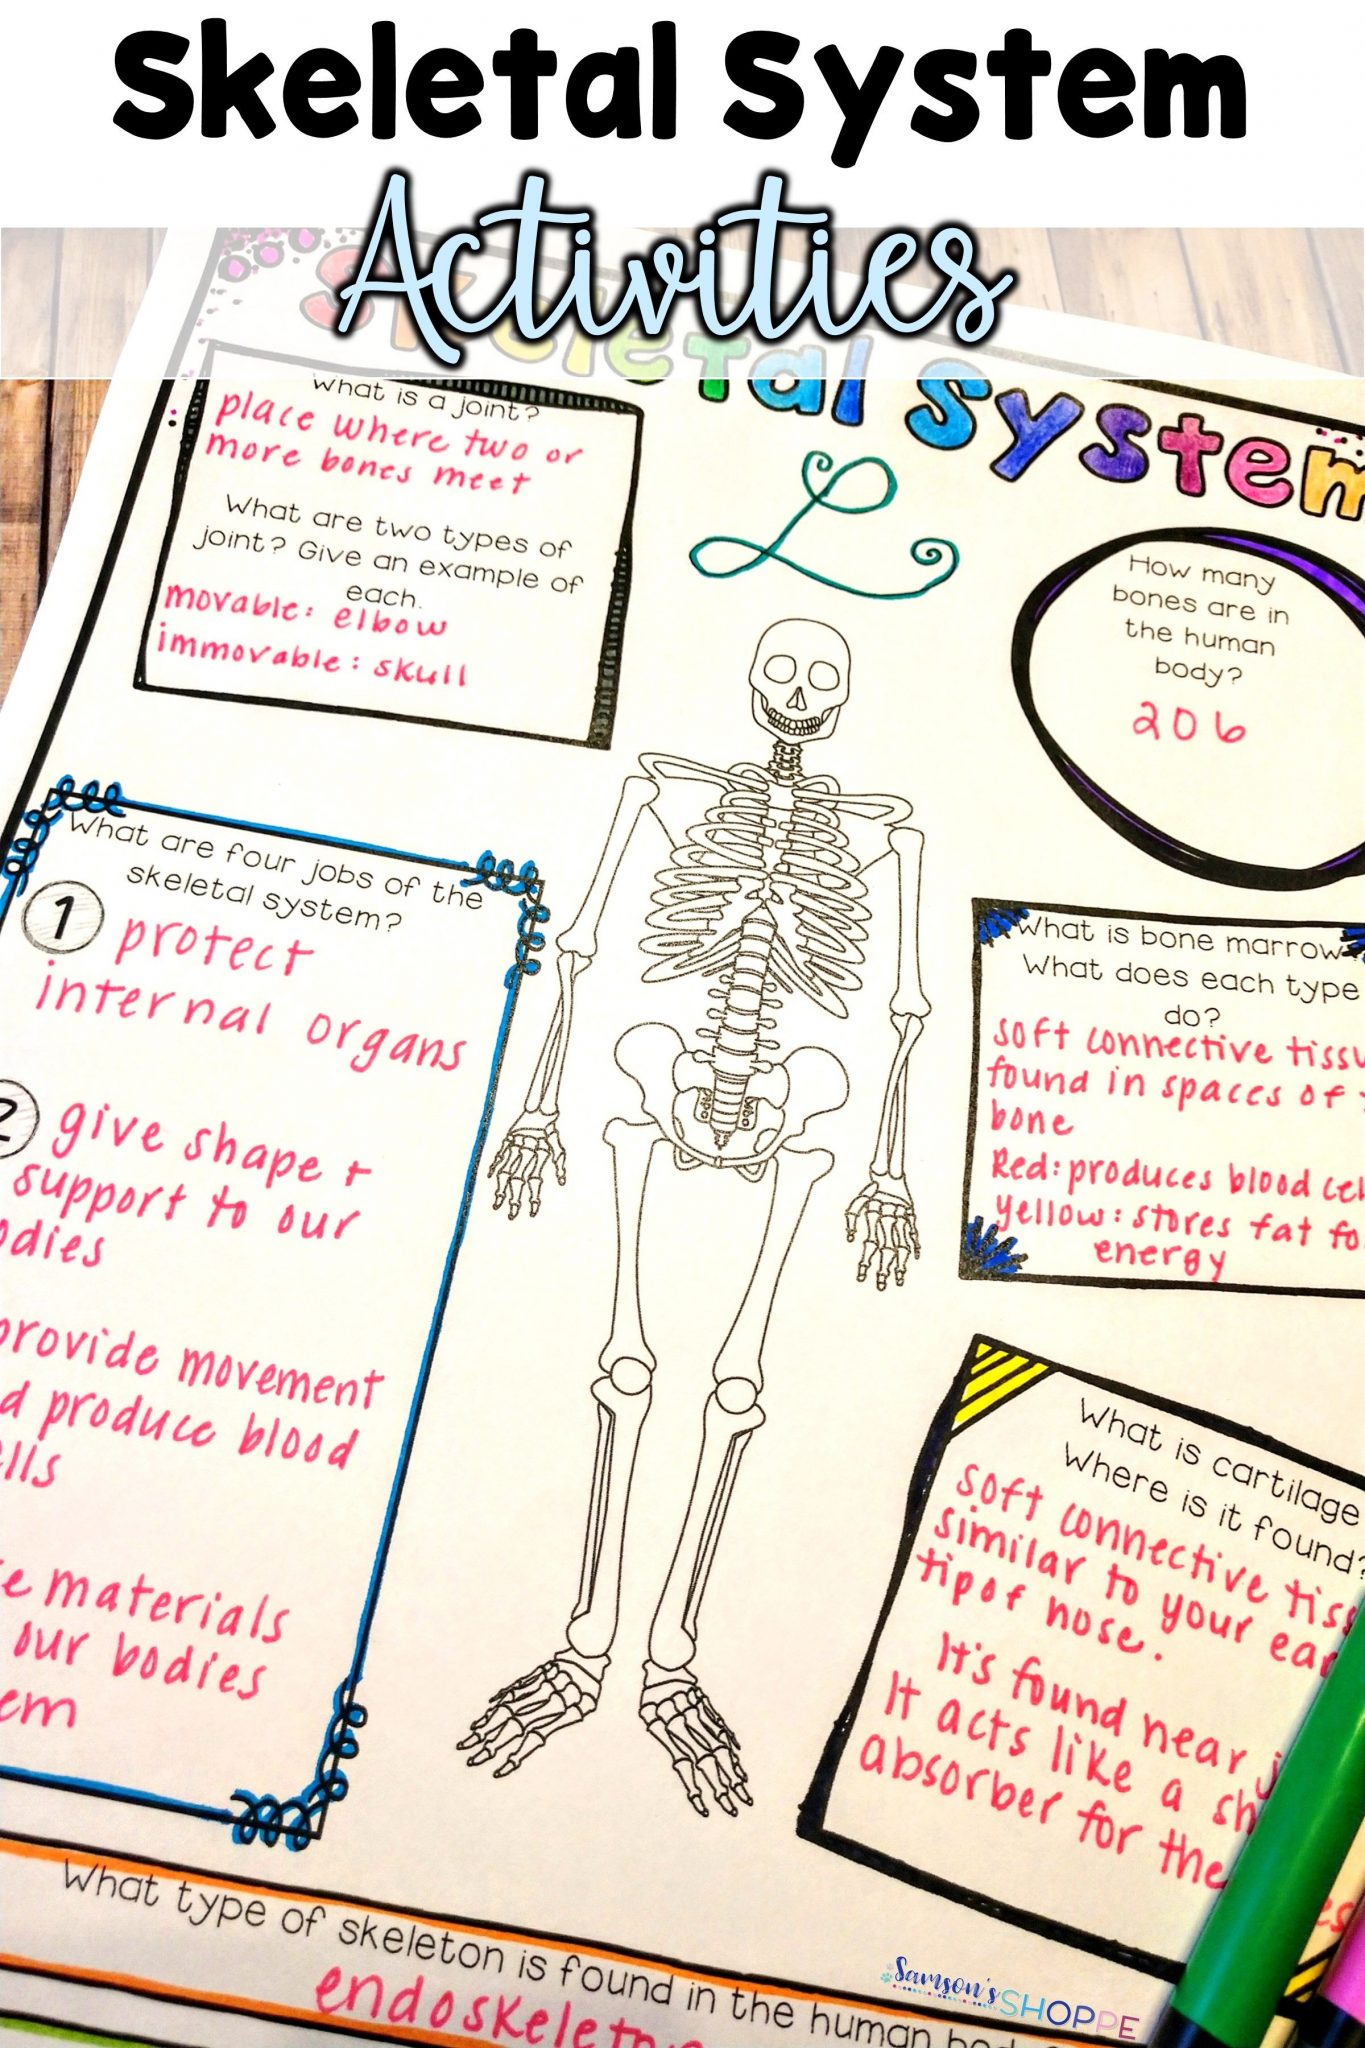 Skeletal System
Activities
Skeletal System
What is a joint?
place where two or
more bones meet
What are two types of
joint? Give an example of
each.
movable: elbow
immovable: skull
How many
bones are in
the human
body?
206
What are four jobs of the
skeletal system?
1 protect
internal organs
2 give shape +
support to our
provide movement
produce blood
materials
our bodies
What is bone marrow
What does each type
do?
soft connective
found in spaces of
bone
Red: produces blood
yellow: stores fat
energy
What is cartilage
Where is it found?
soft connective
similar to your
tip of nose.
It's found near
It acts like a
absorber for the
What type of skeleton is found in the human
Samson's SHOPPE